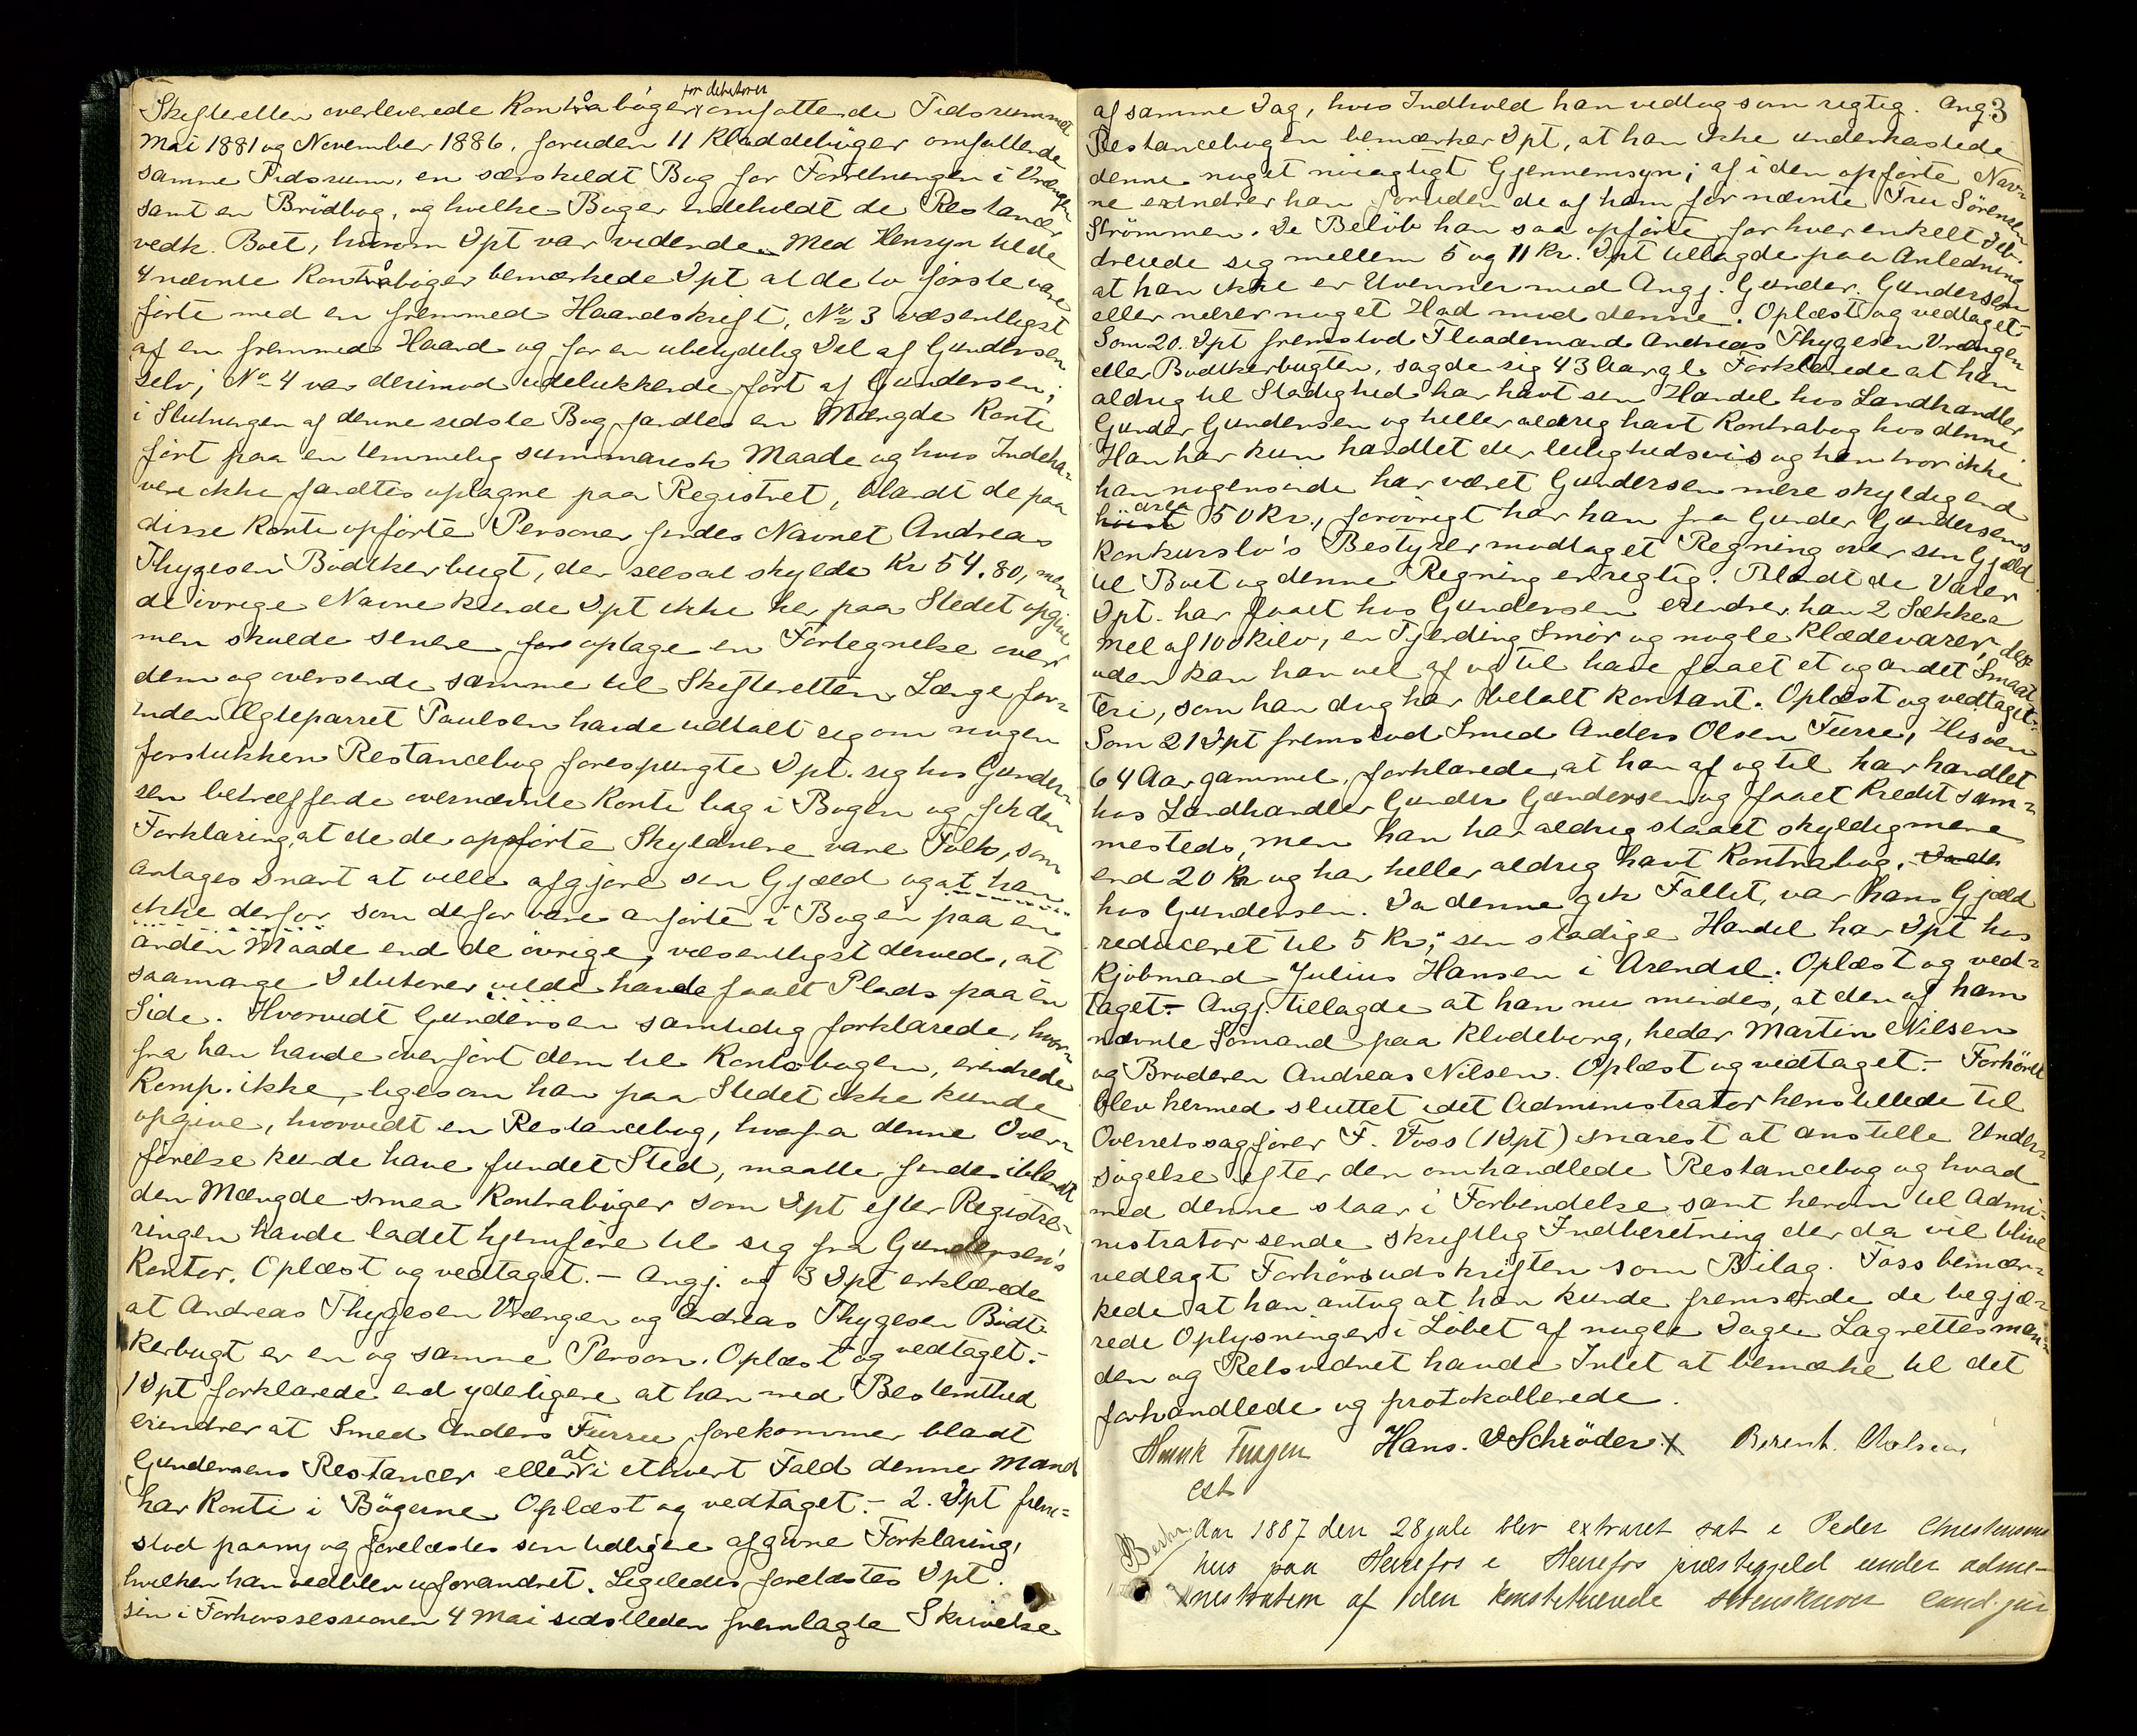 for debitorer
Skifteretten overleverede Kontrabøger omfattende Tidsrummet
Mai 1881 og November 1886, foruden 11 Kladdebøger omfattende
samme Tidsrum, en særskildt Bog for Forretningen i Vrængen
samt en Brødbog, og hvilke Bøger indeholdt de Restancer
vedk. Boet, hvorom Dpt var vidende. Med Hensyn til de
4 nævnte Kontrabøger bemærkede Dpt at de to første vare
førte med en fremmed Haandskrift, No 3 væsentligst
af en fremmed Haand og for en ubetydelig Del af Gundersen
selv; No 4 var derimod udelukkende ført af Gundersen;
i Slutningen af denne sidste Bog fandtes en Mængde Konti
ført paa en temmelig summarisk Maade og hvis Indeha-
vere ikke fandtes optagne paa Registret, blandt de paa
disse Konti opførte Personer findes Navnet Andreas
Thygesen Bödtkerbugt, der sees at skylde Kr 54.80, men
de øvrige Navne kunde Dpt ikke her paa Stedet opgive
men skulde senere optage en Fortegnelse over
dem og oversende samme til Skifteretten. Længe for-
inden Ægteparret Paulsen havde udtalt sig om nogen
forstukken Restancebog forespurgte Dpt. sig hos Gunder-
sen betræffende overnævnte Konti bag i Bogen og fik den
Forklaring, at de der opførte Skyldnere vare Folk, som
antages snart at ville afgjøre sin Gjæld og at han
ikke derfor som derfor vare anførte i Bogen paa en
anden Maade end de øvrige, væsentligst derved, at
saamange Debitorer vilde havde faaet Plads paa èn
Side. Hvorvidt Gundersen samtidig forklarede, hvor-
fra han havde overført dem til Kontobogen, erindrede
Komp. ikke, ligesom han paa Stedet ikke kunde
opgive, hvorvidt en Restancebog, hvorfra denne Over-
førelse kunde have fundet Sted, maatte findes iblandt
den Mængde smaa Kontrabøger som Dpt efter Registre-
ringen havde ladet hjemføre til sig fra Gundersen's
Kontor. Oplæst og vedtaget. – Angj. og 3 Dpt erklærede
at Andreas Thygesen Vrængen og Andreas Thygesen Bödt-
kerbugt er en og samme Person. Oplæst og vedtaget. –
1 Dpt forklarede end yderligere at han med Bestemthed
erindrer at Smed Anders Furre forekommer blandt
Gundersens Restancer eller at i ethvert Fald denne Mand
har Konti i Bøgerne. Oplæst og vedtaget. – 2. Dpt frem=
stod paany og forelæstes sin tidligere afgivne Forklaring,
hvilken han vedblev uforandret. Ligeledes forelæstes Dpt.
sin i Forhørssessionen 4 Mai sidstleden fremlagte Skrivelse
3
af samme Dag, hvis Indhold han vedtog som rigtig. Ang.
Restancebogen bemærker Dpt, at han ikke underkastede
denne noget nøiagtigt Gjennemsyn; af i den opførte Nav-
ne erindrer han foruden de af ham før nævnte Fru Sörensen
Strömmen. De Beløb han saa opførte for hver enkelt Deb.
dreiede sig mellem 5 og 11 Kr. Dpt tillagde paa Anledning
at han ikke er Uvenner med Angj. Gunder Gundersen
eller nærer noget Had mod denne. Oplæst og vedtaget –
Som 20. Dpt fremstod Flaademand Andreas Thygesen Vrængen
eller Bødtkerbugten, sagde sig 43 Aar gl. Forklarede at han
aldrig til Stadighed har havt sin Handel hos Landhandler
Gunder Gundersen og heller aldrig havt Kontrabog hos denne.
Han har kun handlet der leilighedsvis og han tror ikke
han nogensinde har været Gundersen mere skyldig end
50 Kr., forøvrigt har han fra Gunder Gundersens
Konkursbo's Bestyrer modtaget Regning over sin Gjæld
til Boet og denne Regning er rigtig. Blandt de Varer
Dpt. har faaet hos Gundersen erindrer han 2 Sække a
Mel af 100 Kilo, en Fjerding Smør og nogle Klædevarer, des-
uden kan han vel af og til have faaet et og andet Smaat-
teri, som han dog har betalt kontant. Oplæst og vedtaget. –
Som 21 Dpt fremstod Smed Anders Olsen Furre, Hisøen
64 Aar gammel, forklarede, at han af og til har handlet
hos Landhandler Gunder Gundersen og faaet Kredit sam-
mesteds, men han har aldrig staaet skyldig mere
end 20 Kr og har heller aldrig havt Kontrabog,
hos Gundersen. Da denne gik Fallit, var hans Gjæld
reduceret til 5 Kr; sin stadige Handel har Dpt hos
Kjøbmand Julius Hansen i Arendal. Oplæst og ved-
taget – Angj. tillagde at han nu mindes, at den af ham
nævnte Sømand paa Klodeborg, heder Martin Nilsen
og Broderen Andreas Nilsen. Oplæst og vedtaget. – Forhöret
blev hermed sluttet idet Administrator henstillede til
Overretssagfører F. Foss (1 Dpt) snarest at anstille Under-
søgelse efter den omhandlede Restancebog og hvad
med denne staar i Forbindelse samt herom til Admi-
nistrator sende skriftlig Indberetning der da vil blive
vedlagt Forhørsudskriften som Bilag. Foss bemær-
kede at han antog at han kunde fremsende de begjæ-
rede Oplysninger i Løbet af nogle Dage. Lagrettesmæn-
den og Retsvidnet havde Intet at bemærke til det
forhandlede og protokollerede.
Hans. Schröder.
cst
Aar 1887 den 28 juli blev extraret sat i Peder Christensens
hus paa Herefos i Herefos præstegjeld under admi-
nistration af den konstituerede sorenskriver cand. jur